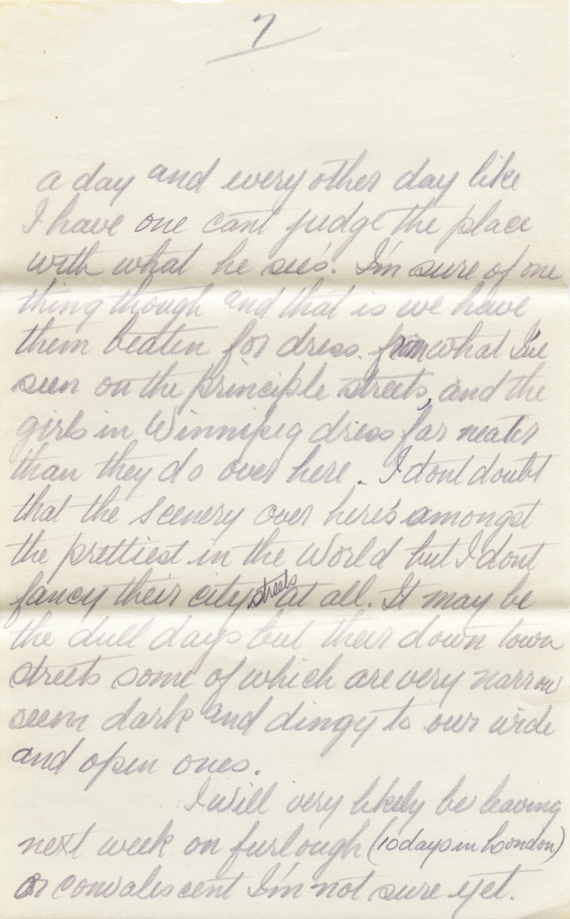 7
a day and every other day like
I have one cant judge the place
with what he see's. I'm sure of one
thing though and that is we have
them beaten for dress from what I've
seen on the principle streets, and the
girls in Winnipeg dress far neater
than they do over here. I dont doubt
that the scenery over here's amongst
the prettiest in the World but I dont
fancy their city streets at all. It may be
the dull days but their down town
streets some of which are very narrow
seem dark and dingy to our wide
and open ones.
I will very likely be leaving
next week on furlough (10 days in London)
or convalescent I'm not sure yet.